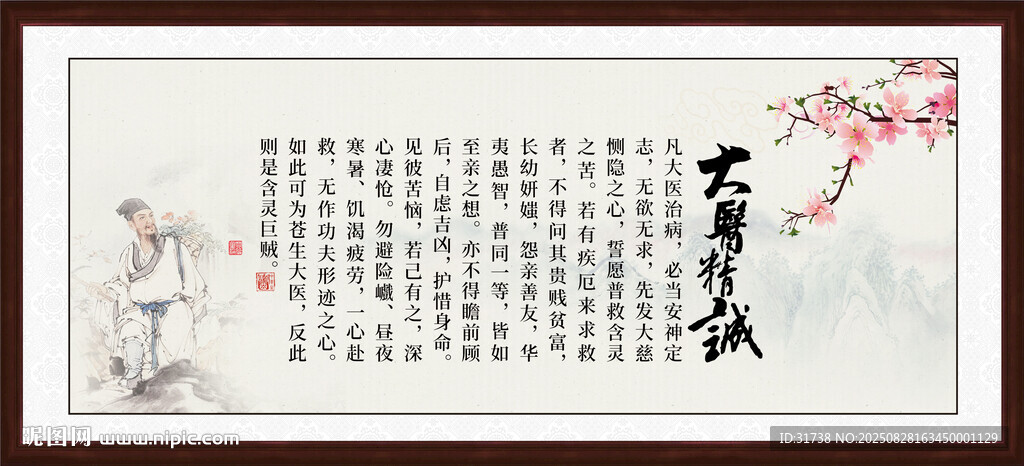 大醫精誠
凡大医治病，必当安神定
志，无欲无求，先发大慈
恻隐之心，誓愿普救含灵
之苦。若有疾厄来求救
者，不得问其贵贱贫富，
长幼妍媸，怨亲善友，华
夷愚智，普同一等，皆如
至亲之想。亦不得瞻前顾
后，自虑吉凶，护惜身命。
见彼苦恼，若己有之，深
心凄怆。勿避险巇、昼夜
寒暑、饥渴疲劳，一心赴
救，无作功夫形迹之心。
如此可为苍生大医，反此
则是含灵巨贼。
昵图网 www.nipic.com
ID:31738 NO:20250828163450001129